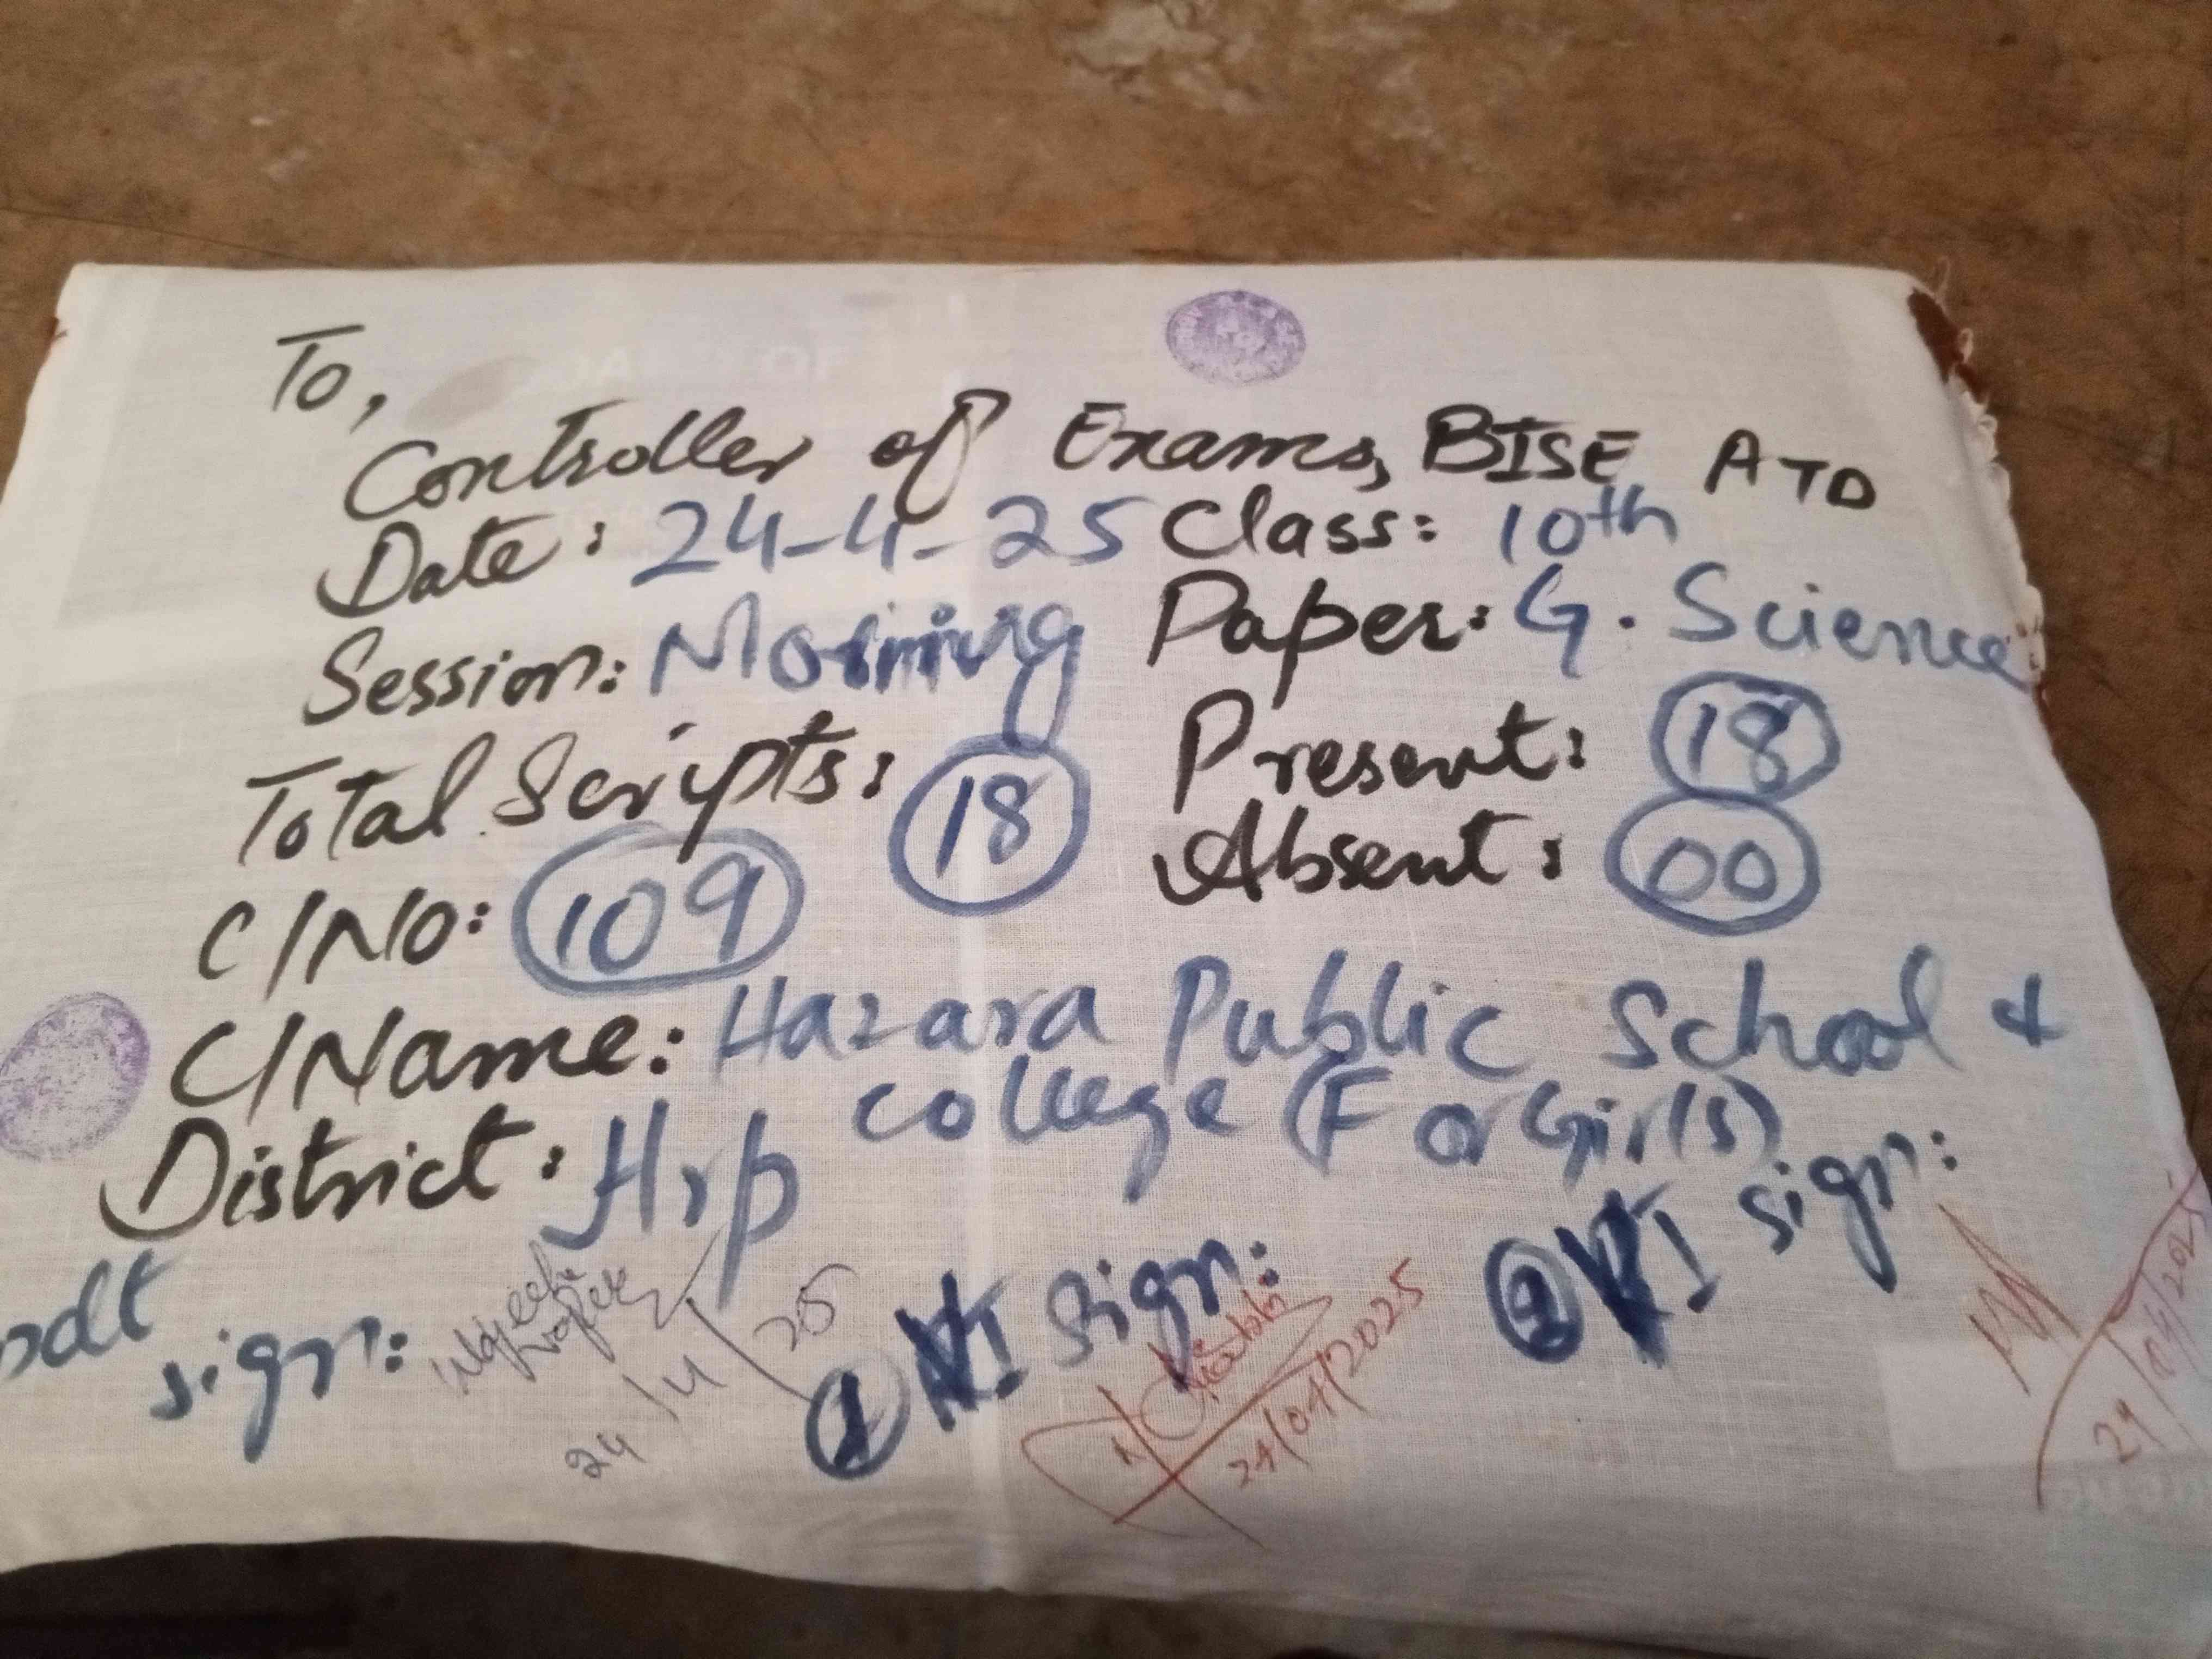 To,
Controller of Exams, BISE ATD
Date: 24-4-25 Class: 10th
Session: Morning Paper: G. Science
Total Scripts: 18 Present: 18
Absent: 00
C/No: 109
C/Name: Hazara Public School &
College (For Girls)
District: Hrp
sign:
24/4/25
1 I Sign:
24/04/2025
2 I sign:
24/04/2025